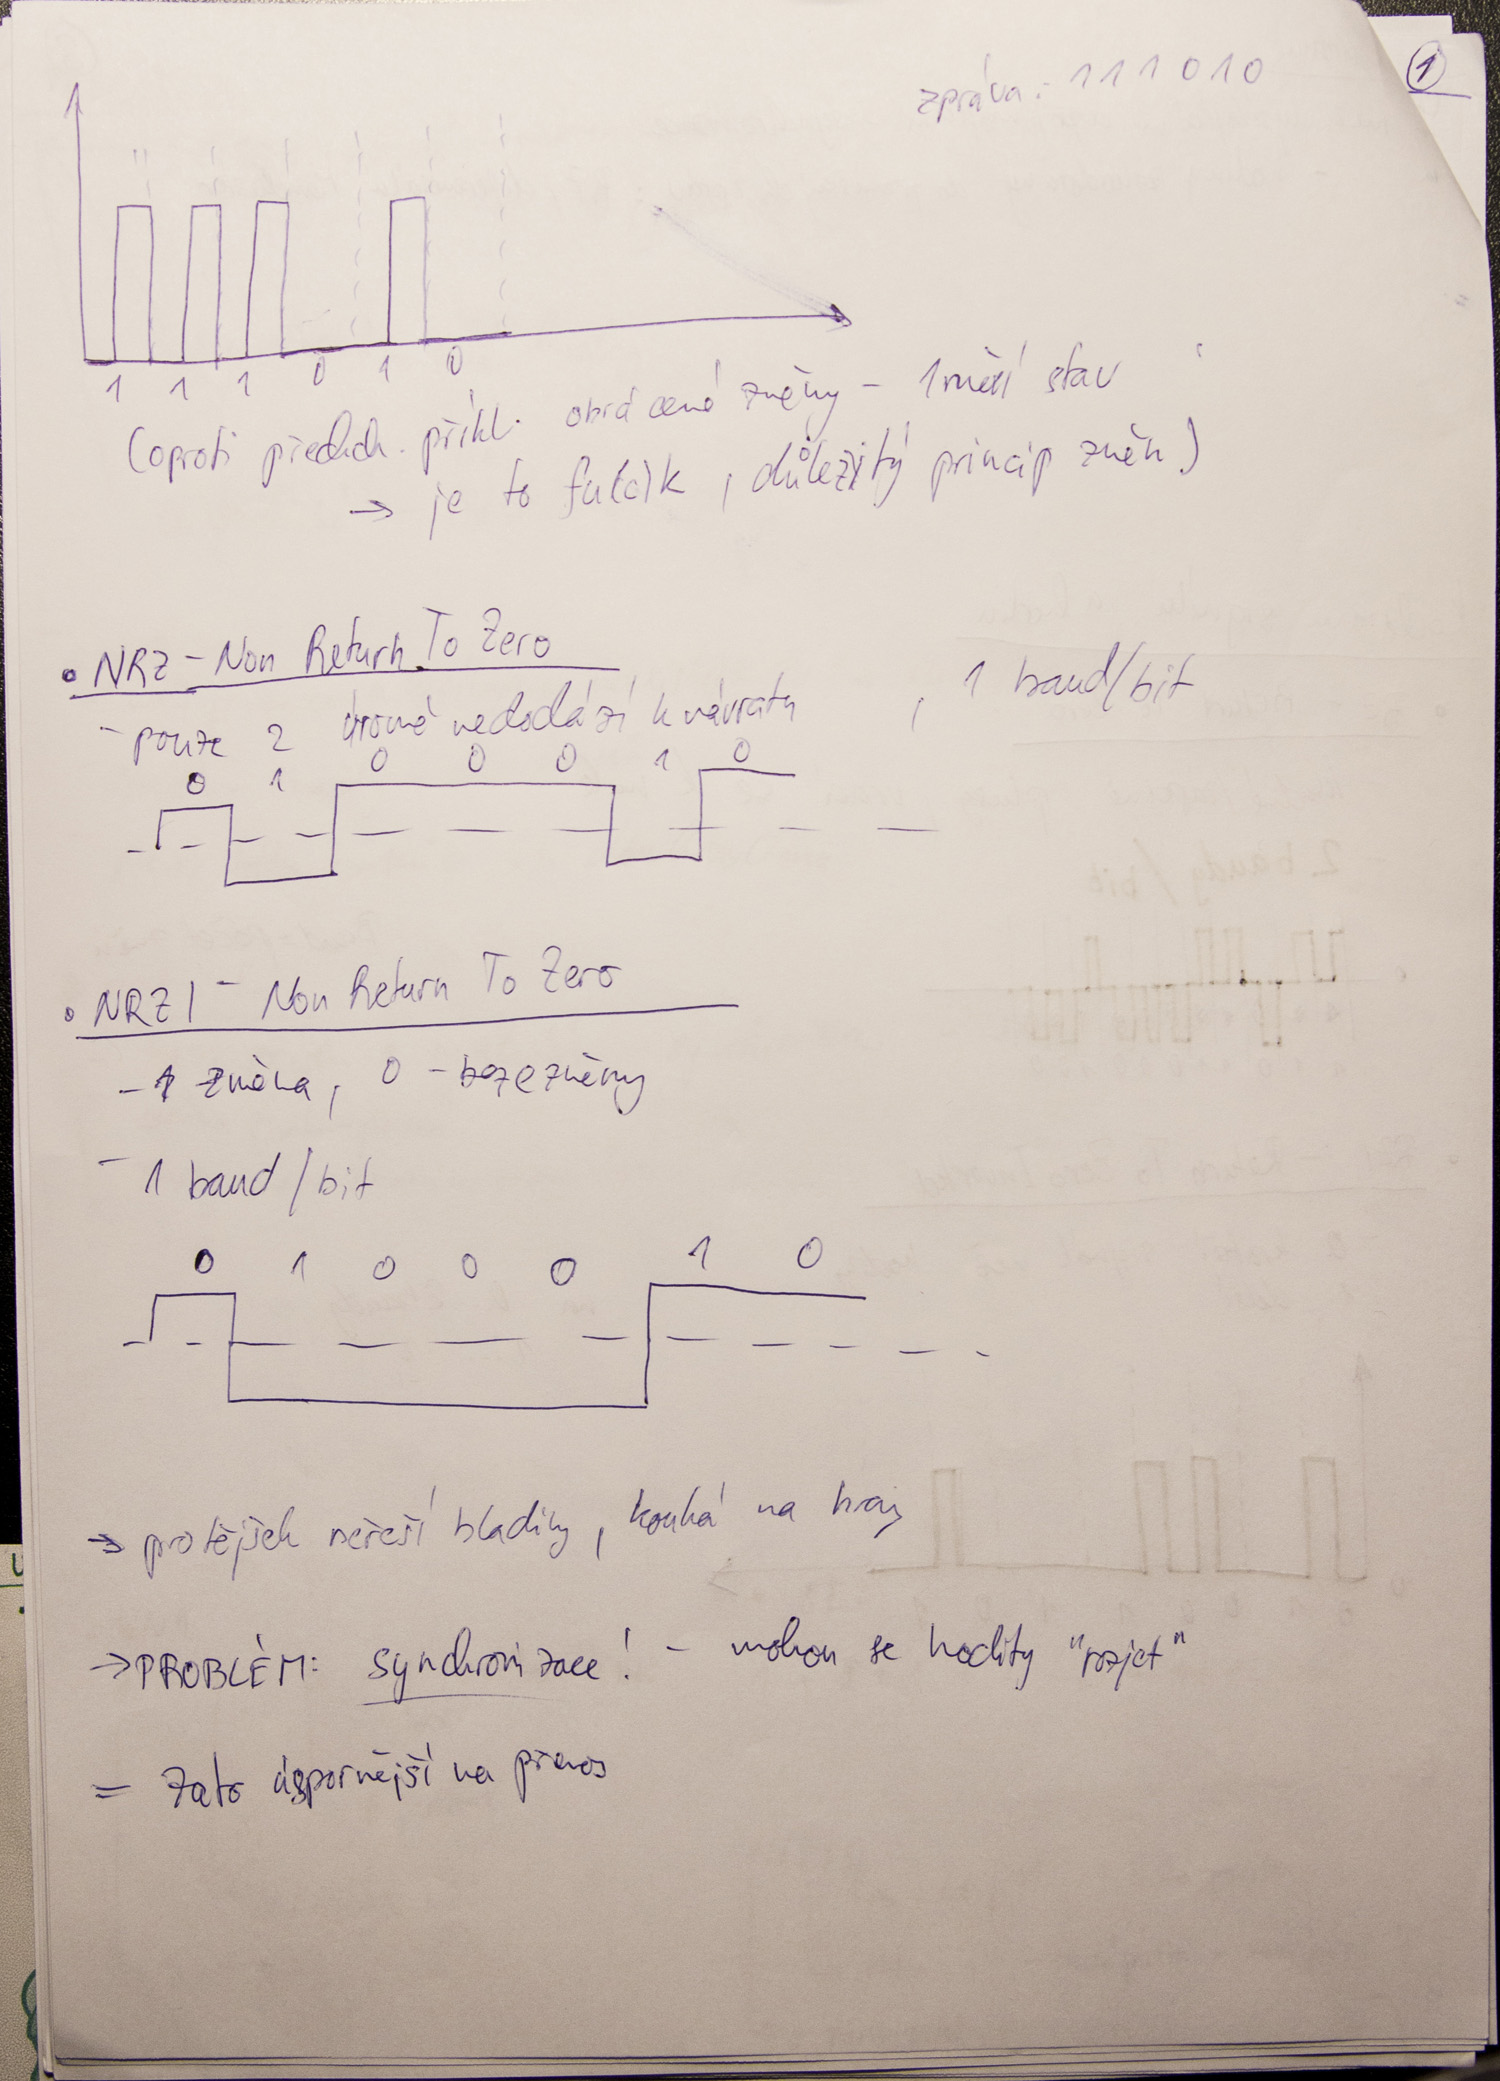 1
zpráva: 111010
1 1 1 0 1 0
(oproti předch. příkl. obrácené změny - 1 mění stav
→ je to fu(c)k, důležitý princip změn)
• NRZ - Non Return To Zero
- pouze 2 úrovně nedochází k návratu, 1 baud/bit
0 1 0 0 0 1 0
• NRZI - Non Return To Zero
- 1 změna, 0 - beze změny
- 1 baud/bit
0 1 0 0 0 1 0
→ protějšek neřeší hladiny, kouká na hrany
→ PROBLÉM: synchronizace! - mohou se hodiny "rozjet"
= Zato úspornější na přenos